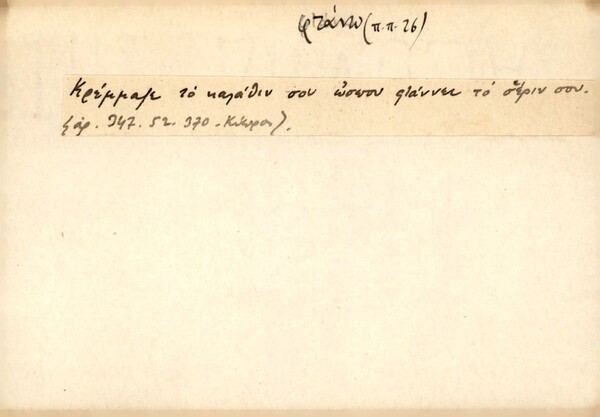 φτάνω (π.π. 26)
Κρέμμασε τό καλάθιν σου ὥσπου φτάννει τό σ̌έριν σου.
(ἀρ. 347. 52. 370 - Κύπρος).